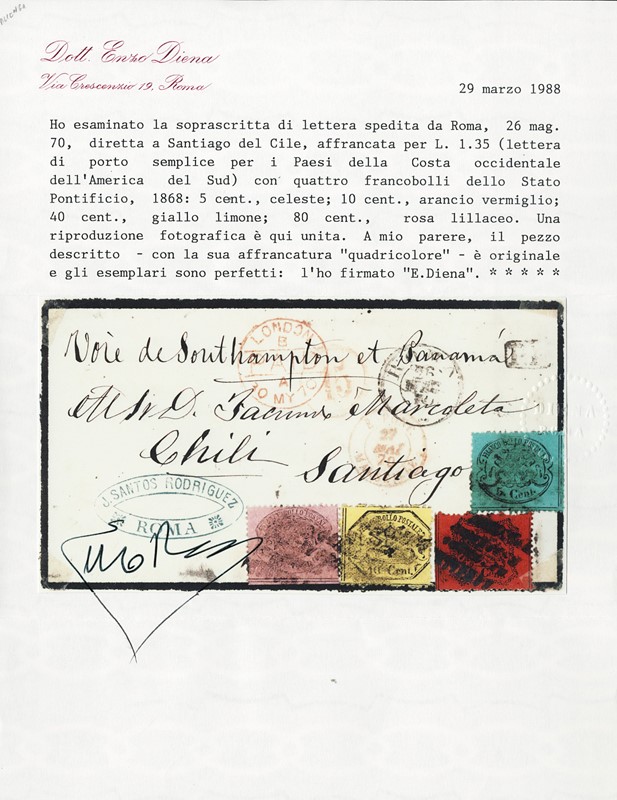 Dott. Enzo Diena
Via Crescenzio 19, Roma
29 marzo 1988
Ho esaminato la soprascritta di lettera spedita da Roma, 26 mag.
70, diretta a Santiago del Cile, affrancata per L. 1.35 (lettera
di porto semplice per i Paesi della Costa occidentale
dell'America del Sud) con quattro francobolli dello Stato
Pontificio, 1868: 5 cent., celeste; 10 cent., arancio vermiglio;
40 cent., giallo limone; 80 cent., rosa lillaceo. Una
riproduzione fotografica è qui unita. A mio parere, il pezzo
descritto - con la sua affrancatura "quadricolore" - è originale
e gli esemplari sono perfetti: l'ho firmato "E.Diena". * * * * *
LONDON
B
PAID
A
30 MY 70
Voie de Southampton et Panamá
D. Facundo Marcoleta
Chili
Santiago
5 Cent.
J. SANTOS RODRIGUEZ
ROMA
40 Cent.